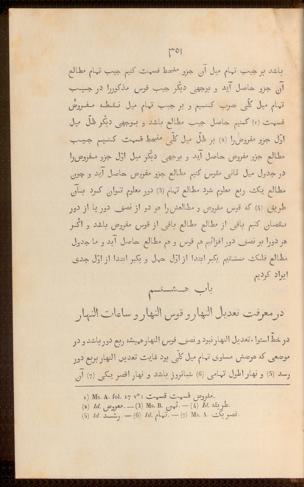 ٣٥١
باشد بر جیب تمام میل آن جزو منحط قسمت کنیم جیب تمام مطالع
آن جزو حاصل آید و بوجهی دیگر جیب قوس مذکوررا در جیب
تمام میل کلّی ضرب کنیم و بر جیب تمام میل نقطه مفروض
قسمت (١) کنیم حاصل جیب مطالع باشد و بوجهی دیگر ظلّ میل
اوّل جزو مفروض‌را (٢) بر ظلّ میل کلّی قسمت کنیم جیب
مطالع جزو مفروض حاصل آید و بوجهی دیگر میل اوّل جزو مفروض‌را
در جدول میل ثانی مقوس کنیم مطالع جزو مفروض حاصل آید و چون
مطالع یک ربع معلوم شود مطالع تمام (3) دور معلوم توان کرد بدآن
طریق (4) که قوس مفروض و مطالعش‌را هر دو از نصف دور یا از دور
نقصان کنیم باقی از مطالع مطالع باقی از قوس مفروض باشد و اگر
هر دورا بر نصف دور افزائیم هم قوس و هم مطالع حاصل آید و ما جدول
مطالع فلک مستقیم یکبر ابتدا از اوّل حمل و یکبر ابتدا از اوّل جدی
ایراد کردیم
باب هشتم
در معرفت تعدیل النهار و قوس النهار و ساعات النهار
در خطّ استوا تعدیل النهار نبود و نصف قوس النهار همیشه ربع دور باشد و در
موضعی که عرضش مساوی تمام میل کلّی بود غایت تعدیل النهار بربع دور
رسد (5) و نهار اطول تمامی (6) شبانروز باشد و نهار اقصر بیکی (7) آن
1) Ms. A. fol. 17 v°: مفروض قسمت قسمت.
(2) Id. معروض. — (3) Ms. B. تمن. — (4) Id. طریقه.
(5) Id. رشد. — (6) Id. تمام. — (7) Ms. A.